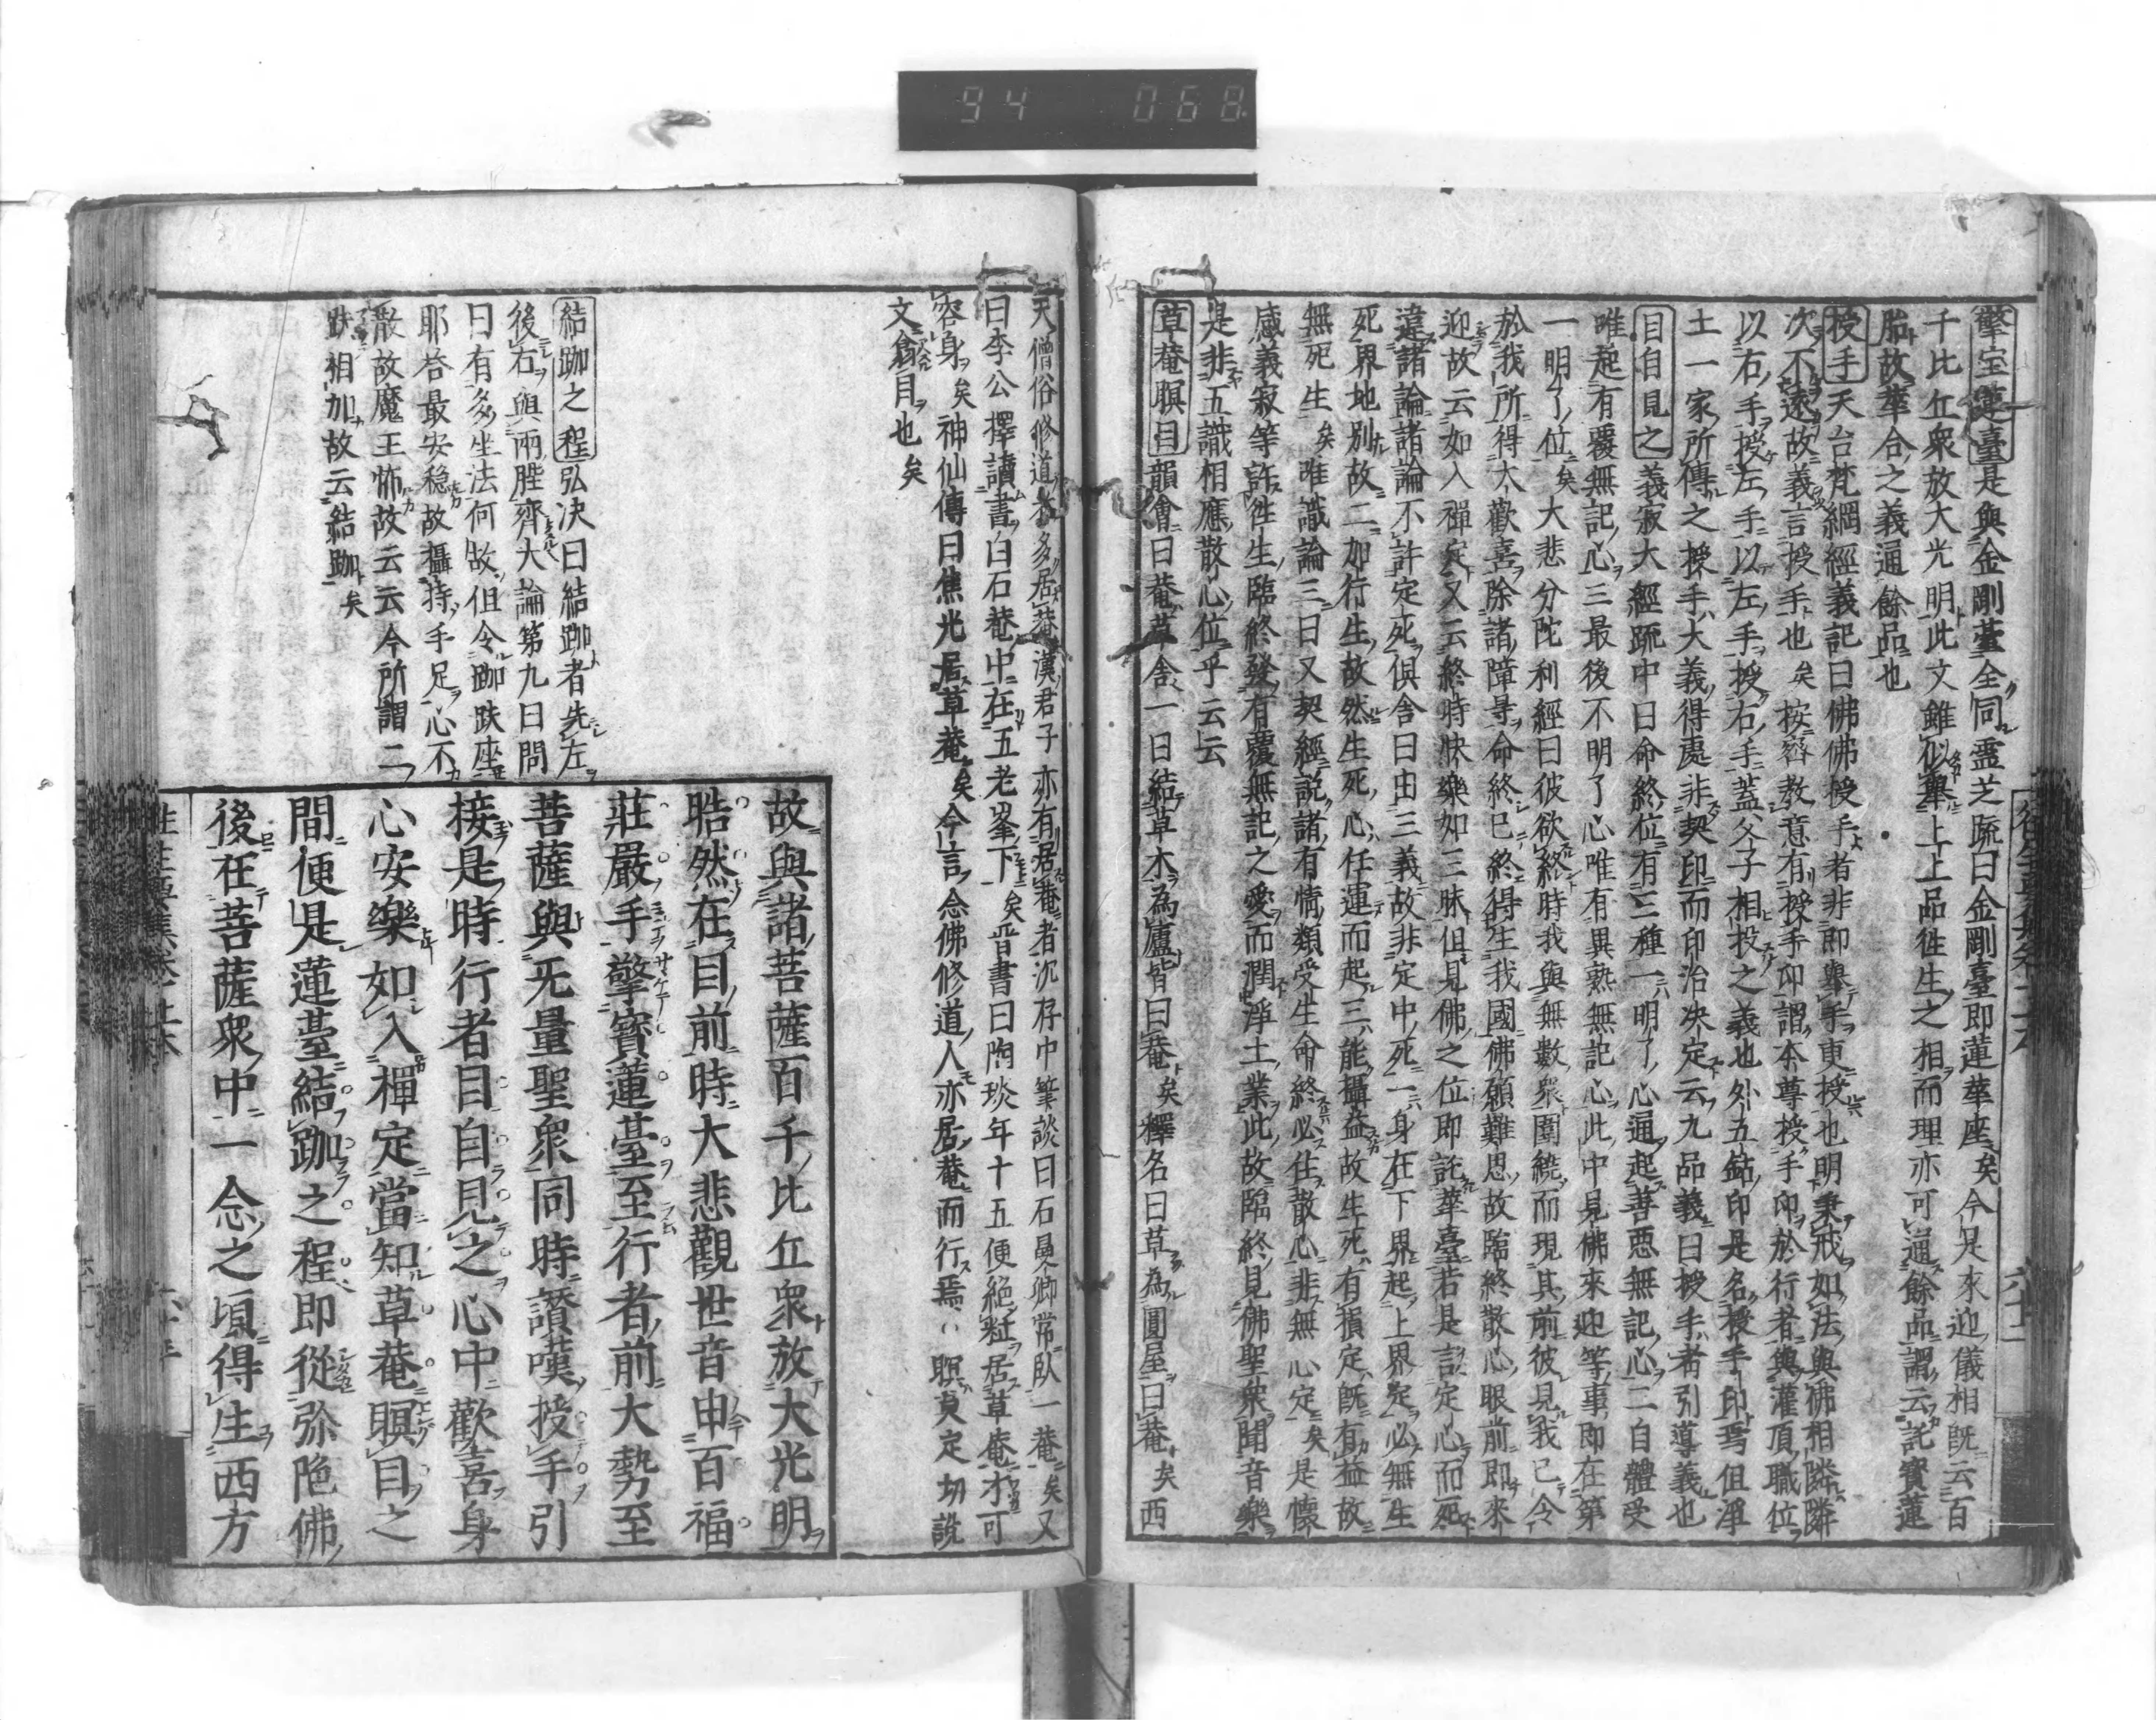 94 068
擎宝蓮臺是與金剛臺全同靈芝疏曰金剛臺即蓮華座矣今是來迎儀相既云百
千比丘衆放大光明此文雖似舉上上品往生之相而理亦可通餘品謂云託寳蓮
胎故華合之義通餘品也
授手天台梵網經義記曰佛佛授手者非即舉手更授也明秉戒如法與佛相隣隣
次不遠故義言授手也矣按密教意有授手印謂本尊授手印於行者與灌頂職位
以右手授左手以左手授右手蓋父子相投之義也外五鈷印是名授手印焉但淨
土一家所傳之授手大義得處非契印而印治决定云九品義曰授手者引導義也
目自見之義寂大經疏中曰命終位有三種一明了心通起善悪無記心二自體受
唯起有覆無記心三最後不明了心唯有異熟無記心此中見佛來迎等事即在第
一明了位矣大悲分陀利經曰彼欲終時我與無數衆圍繞而現其前彼見我已令
於我所得大歡喜除諸障导命終已終得生我國佛願難思故臨終散心眼前即來
迎故云如入禪定又云終時快樂如三昧但見佛之位即託華臺若是言定心而死
違諸論諸論不許定死倶舍曰由三義故非定中死一身在下界起上界定必無生
死界地別故二加行生故然生死心任運而起三能攝益故生死有損定既有益故
無死生矣唯識論三曰又契經説諸有情類受生命終必住散心非無心定矣是懷
感義寂等許往生臨終發有覆無記之愛而潤淨土業此故臨終見佛聖衆聞音樂
是非五識相應散心位乎云云
草菴瞑目韻會曰菴草舎一曰結草木為廬皆曰菴矣釋名曰草為圓屋曰菴矣西
天僧俗修道本多居菴漢君子亦有居菴者沉存中筆談曰石曼卿常臥一菴矣又
曰李公擇讀書白石菴中在五老峯下矣晋書曰陶琰年十五便絶粒居草庵才可
容身矣神仙傳曰焦光居草菴矣今言念佛修道人亦居菴而行焉瞑莫定切説
文翕目也矣
結跏之程弘决曰結跏者先左
後右與兩䏶齊大論第九曰問
曰有多坐法何故但令跏趺座
耶荅最安穏故攝持手足心不
散故魔王怖故云云今所謂二
趺相加故云結跏矣
故與諸菩薩百千比丘衆放大光明
晧然在目前時大悲觀世音申百福
莊嚴手擎寳蓮臺至行者前大勢至
菩薩與无量聖衆同時讃嘆授手引
接是時行者目自見之心中歡喜身
心安樂如入禪定當知草菴瞑目之
間便是蓮臺結跏之程即從弥陀佛
後在菩薩衆中一念之頃得生西方